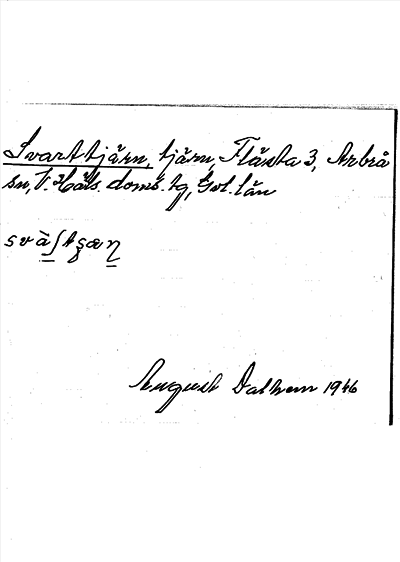 Svarttjärn, tjärn, Flästa 3, Arbrå
sn, V. Häls. doms. tg, Gvl. län
svàʃtʂæɳ
August Dalhem 1946